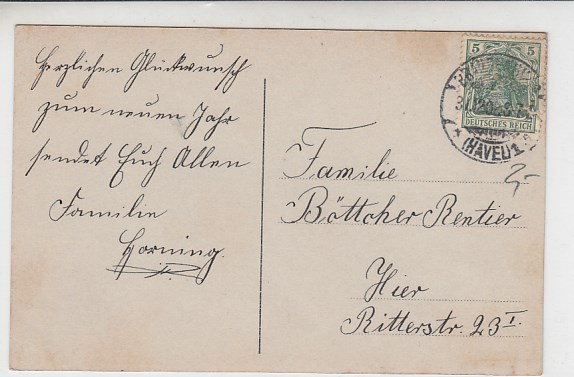 Herzlichen Glückwunsch
zum neuen Jahr
sendet Euch Allen
Familie
Horning.
5 5
DEUTSCHES REICH
(HAVEL) 1
2,-
Familie
Böttcher Rentier
Hier
Ritterstr. 23 I.